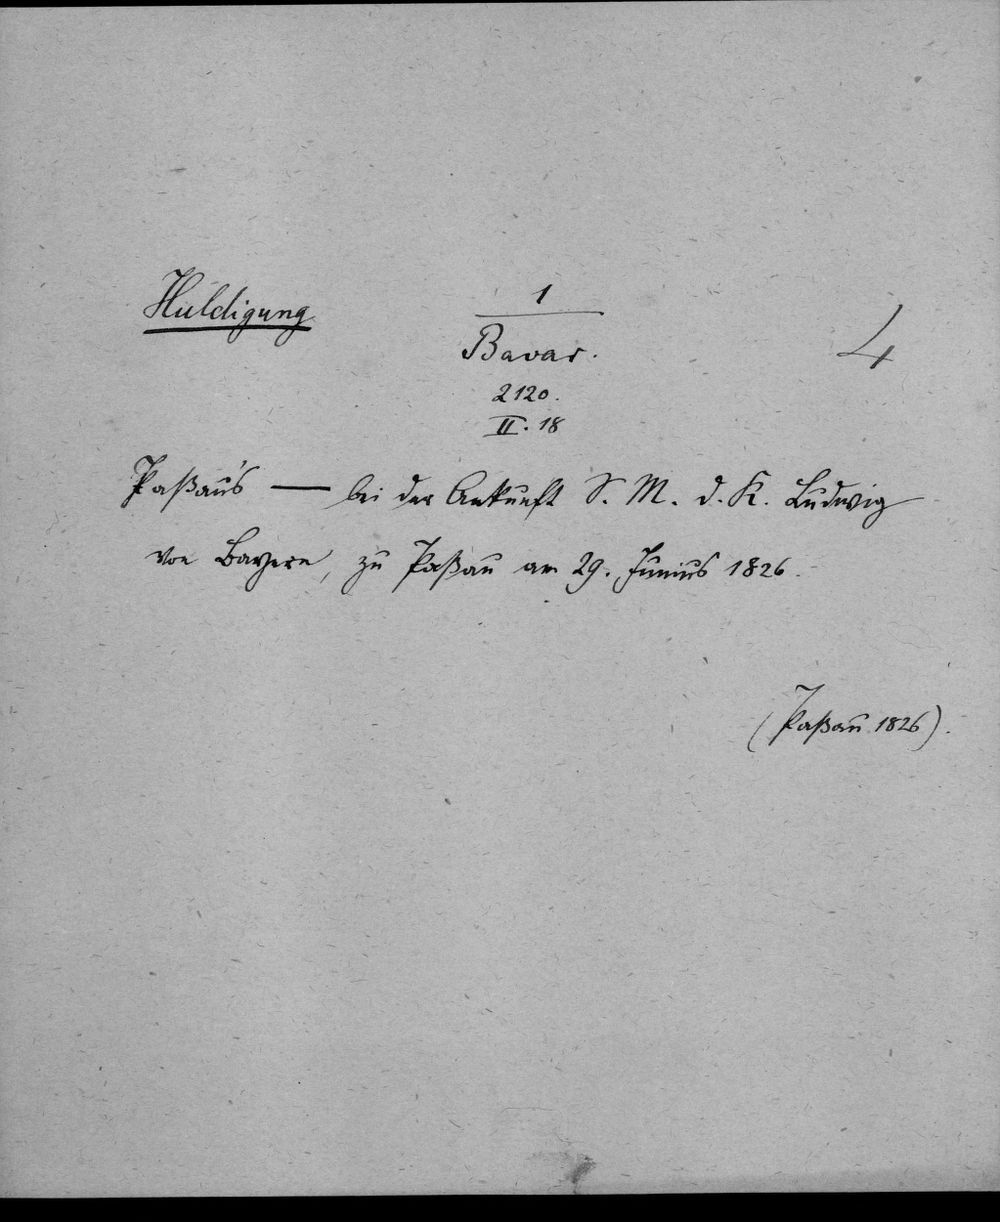 Huldigung
1
Bavar.
4
2120.
II. 18
Paßau's — bei der Ankunft S. M. d. K. Ludwig
von Bayern, zu Paßau am 29. Junius 1826.
(Paßau 1826).